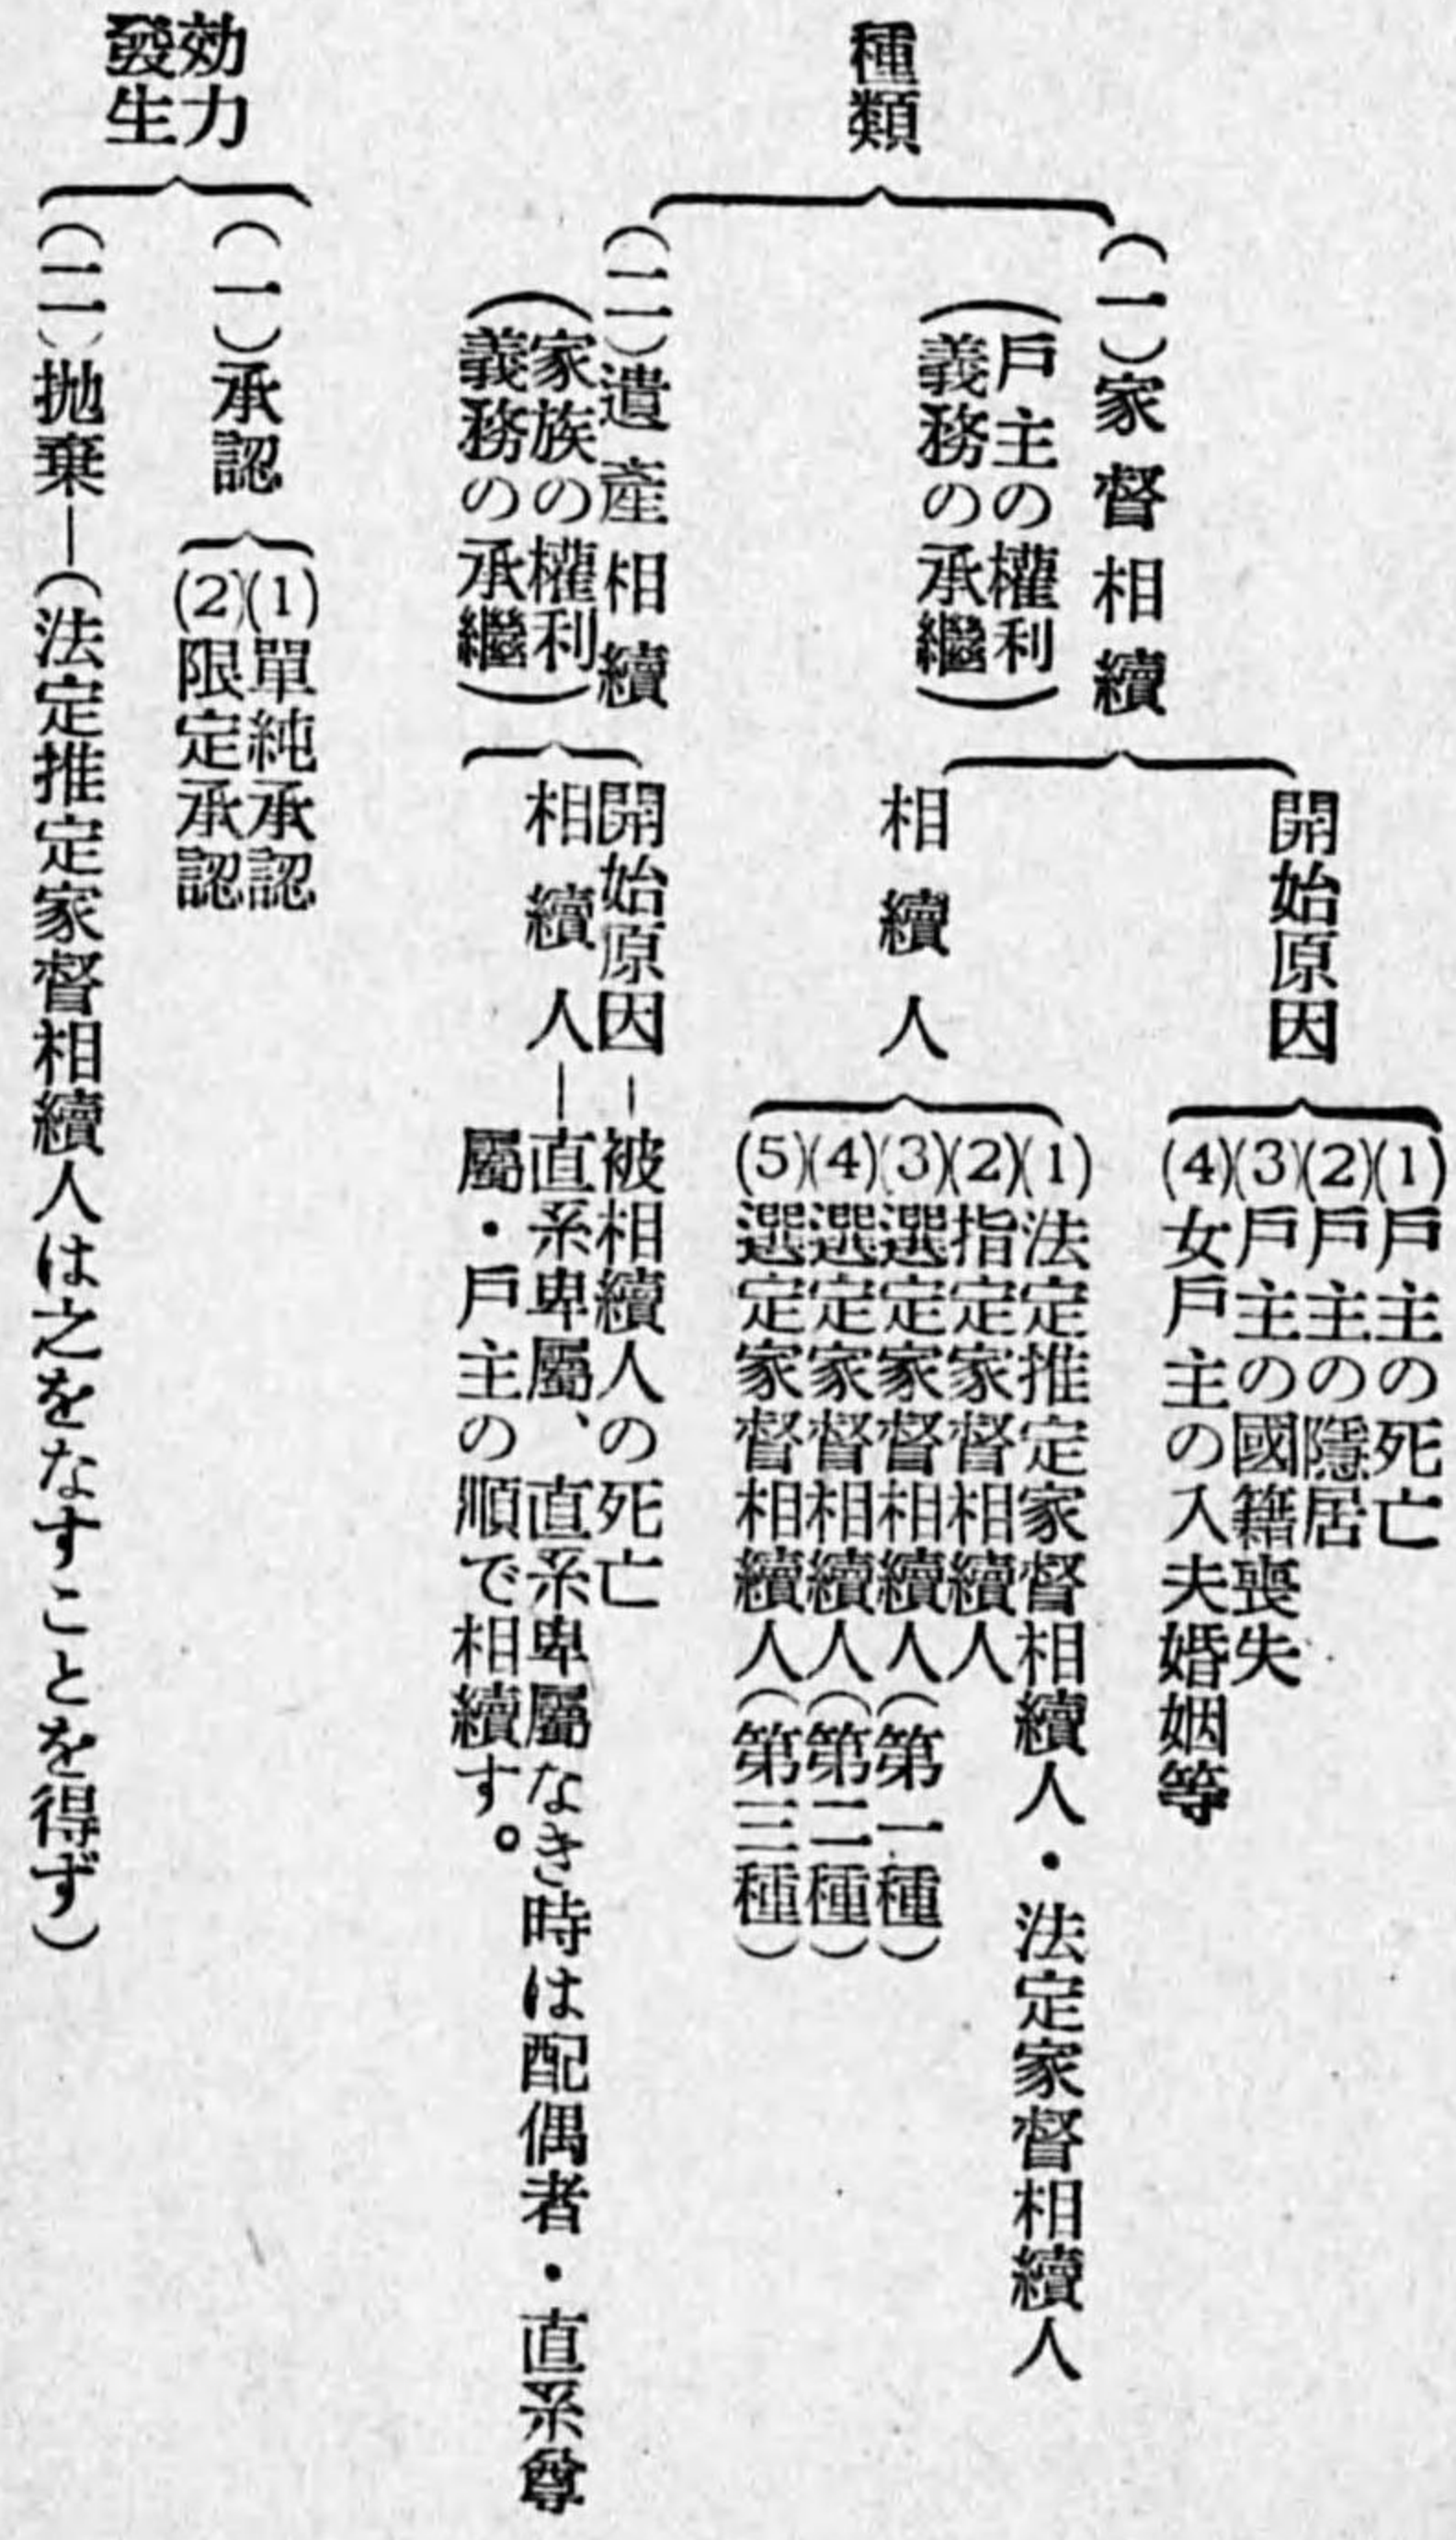 種類
(一)家督相續
(戶主の權利
義務の承繼)
開始原因
(1)戶主の死亡
(2)戶主の隱居
(3)戶主の國籍喪失
(4)女戶主の入夫婚姻等
相續人
(1)法定推定家督相續人・法定家督相續人
(2)指定家督相續人
(3)選定家督相續人(第一種)
(4)選定家督相續人(第二種)
(5)選定家督相續人(第三種)
(二)遺產相續
(家族の權利
義務の承繼)
開始原因―被相續人の死亡
相續人―直系卑屬、直系卑屬なき時は配偶者・直系尊
屬・戶主の順で相續す。
効力
發生
(一)承認
(1)單純承認
(2)限定承認
(二)抛棄―(法定推定家督相續人は之をなすことを得ず)